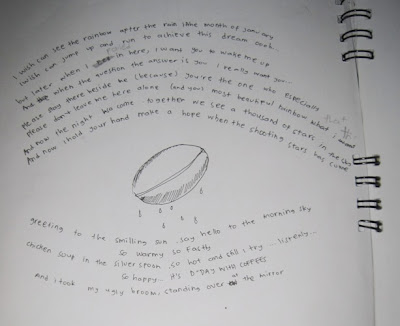 I wish can see the rainbow after the rain inthe month of january
I wish can jump up and run to achieve this dream oooh..
but later when I in here, I want you to wake me up
when the question the answer is you I really want you...
Please stay there beside me (because) you're the one who especially
please don't leave me here alone (and you) most beautiful rainbow what I want
And now the night has come together we see a thousand of stars in the sky
And now i hold your hand make a hope when the shooting stars has come
greeting to the smilling sun say hello to the morning sky
so warmy so fastly
chicken soup in the silver spoon so hot and still I try ... listenly...
so happy.. it's D'DAY WITH COFFEES
And I took my ugly broom, standing over the mirror